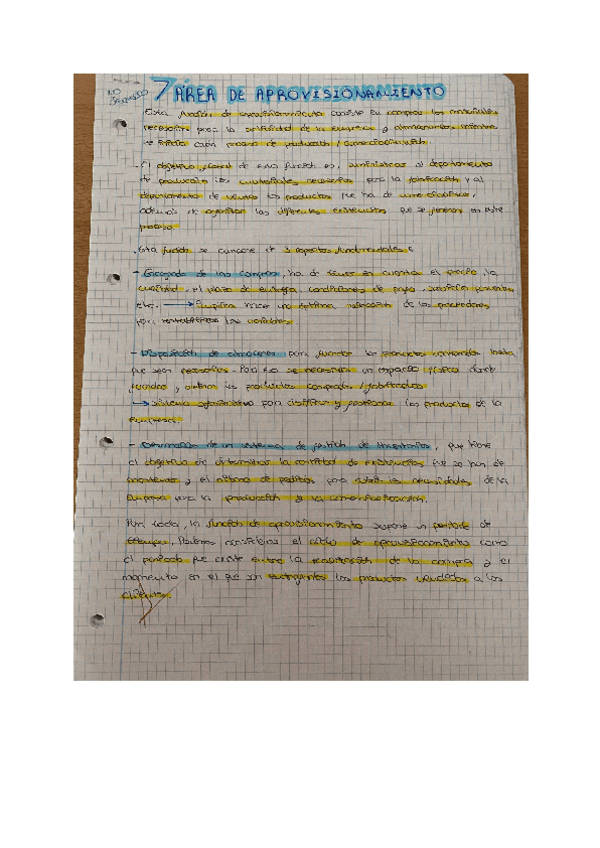 7 ÁREA DE APROVISIONAMIENTO
Esta función de aprovisionamiento consiste en comprar los materiales
necesarios para la actividad de la empresa y almacenarlos, mientras
se inicia cada proceso de producción / comercialización.
. El objetivo general de esta función es, suministrar al departamento
de producción los materiales necesarios para la fabricación y al
departamento de ventas los productos que ha de comercializar,
además de gestionar las diferentes existencias que se generan en este
proceso.
. Esta función se compone de 3 aspectos fundamentales:
- Encargada de las compras, ha de tener en cuenta el precio, la
calidad, el plazo de entrega, condiciones de pago, servicio posventa,
etc. → Implica hacer una óptima selección de los proveedores,
para rentabilizar las variables.
- Disposición de almacenes para guardar los productos comprados hasta
que sean necesarios. Para eso se necesitan un espacio físico donde
guardar y ordenar los productos comprados / fabricados.
→ sistema organizativo para clasificar y gestionar los productos de la
empresa.
- Desarrollo de un sistema de gestión de inventarios, que tiene
el objetivo de determinar la cantidad de existencias que se han de
mantener y el ritmo de pedidos para cubrir las necesidades de la
empresa para la producción y la comercialización.
la función de aprovisionamiento supone un periodo de
tiempo. Podemos considerar el ciclo de aprovisionamiento como
el periodo que existe entre la realización de la compra y el
momento en el que son entregados los productos vendidos a los
clientes.